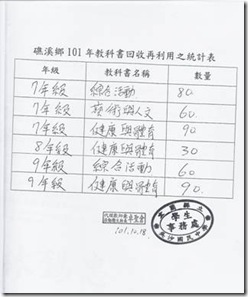 礁溪鄉 101 年教科書回收再利用之統計表
年級 教科書名稱 數量
7年級 綜合活動 80.
7年級 藝術與人文 60.
7年級 健康與體育 90
8年級 健康與體育 30
9年級 綜合活動 60
9年級 健康與體育 90.
學生
事務處
101.10.18.